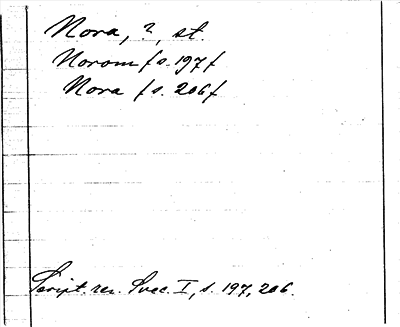 Nora, ?, st.
Norom (s. 197)
Nora (s. 206)
Script. rer. Svec. I, s. 197, 206.